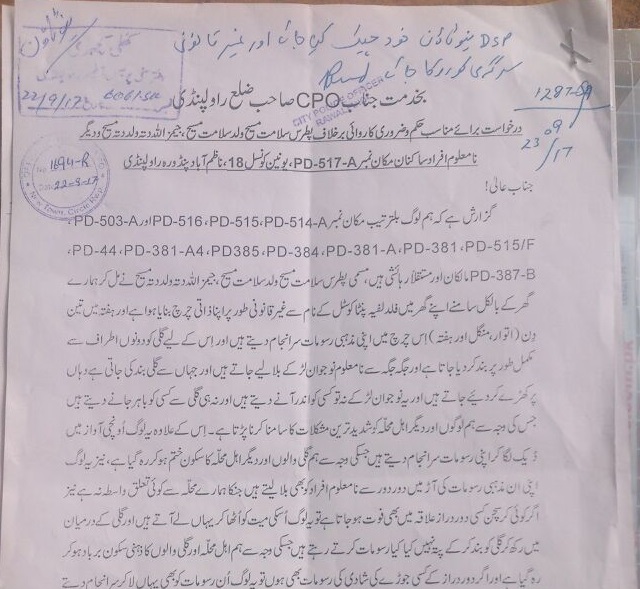 کھلی کچہری
22/9/17 6061SR
DSP نیو ٹاؤن خود چیک کریں اور غیر قانونی
سرگرمی کو روکا جائے
CITY POLICE OFFICER
RAWALPINDI
1287-SDP
23/09/17
بخدمت جناب CPO صاحب ضلع راولپنڈی
درخواست برائے مناسب حکم و ضروری کاروائی برخلاف پطرس سلامت مسیح ولد سلامت مسیح، جیمز اللہ دتہ ولد دتہ مسیح و دیگر
نا معلوم افراد ساکنان مکان نمبر PD-517-A، یونین کونسل 18، ناظم آباد پنڈورہ راولپنڈی
No. 1694-R
22-9-17
New Town, Circle Rwp
جناب عالی!
گزارش ہے کہ ہم لوگ بلترتیب مکان نمبر PD-514-A، PD-515، PD-516 اور PD-503-A،
PD-515/F، PD-381، PD-381-A، PD-384، PD385، PD-381-A4، PD-44،
PD-387-B مالکان اور مستقلا رہائشی ہیں، مسمی پطرس سلامت مسیح ولد سلامت مسیح، جیمز اللہ دتہ ولد دتہ مسیح نے مل کر ہمارے
گھر کے بالکل سامنے اپنے گھر میں فلدلفیہ پنٹا کوسٹل کے نام سے غیر قانونی طور پر اپنا ذاتی چرچ بنایا ہوا ہے اور ہفتہ میں تین
دن (اتوار، منگل اور ہفتہ) اس چرچ میں اپنی مذہبی رسومات سرانجام دیتے ہیں اور اس کے لیے گلی کو دونوں اطراف سے
مکمل طور پر بند کر دیا جاتا ہے اور جگہ جگہ سے نا معلوم نوجوان لڑکے بلا لیے جاتے ہیں اور جہاں سے گلی بند کی جاتی ہے وہاں
پر کھڑے کر دئیے جاتے ہیں اور یہ نوجوان لڑکے نہ تو کسی کو اندر آنے دیتے ہیں اور نہ ہی گلی سے کسی کو باہر جانے دیتے ہیں
جس کی وجہ سے ہم لوگوں اور دیگر اہل محلہ کو شدید ترین مشکلات کا سامنا کرنا پڑتا ہے۔ اس کے علاوہ یہ لوگ اونچی آواز میں
ڈیک لگا کر اپنی رسومات سرانجام دیتے ہیں جسکی وجہ سے ہم گلی والوں اور دیگر اہل محلہ کا سکون ختم ہو کر رہ گیا ہے، نیز یہ لوگ
اپنی ان مذہبی رسومات کی آڑ میں دور دور سے نا معلوم افراد کو بھی بلا لیتے ہیں جنکا ہمارے محلہ سے کوئی تعلق واسطہ نہ ہے نیز
اگر کوئی کرسچن کسی دور دراز علاقہ میں بھی فوت ہو جاتا ہے تو یہ لوگ اُسکی میت کو اُٹھا کر یہاں لے آتے ہیں اور گلی کے درمیان
میں رکھ کر گلی کو بند کر کے پتہ نہیں کیا کیا رسومات کرتے رہتے ہیں جسکی وجہ سے ہم اہل محلہ اور گلی والوں کا ذہنی سکون برباد ہو کر
رہ گیا ہے اور اگر دور دراز کے کسی جوڑے کی شادی کی رسومات بھی ہوں تو یہ لوگ اُن رسومات کو بھی یہاں لا کر سرانجام دیتے